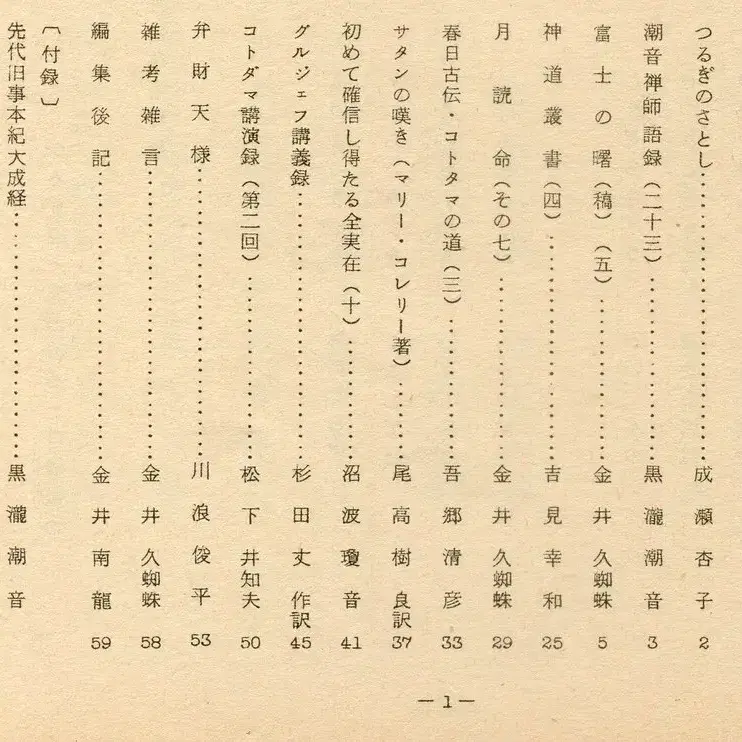 つるぎのさとし……………………成瀬杏子 2
潮音禅師語録(二十三)……………黒瀧潮音 3
富士の曙(稿)(五)………………金井久蜘蛛 5
神道叢書(四)……………………吉見幸和 25
月読命(その七)…………………金井久蜘蛛 29
春日古伝・コトタマの道(三)………吾郷清彦 33
サタンの嘆き(マリー・コレリー著)……尾高樹良訳 37
初めて確信し得たる全実在(十)………沼波瓊音 41
グルジェフ講義録…………………杉田丈作訳 45
コトダマ講演録(第二回)……………松下井知夫 50
弁財天様……………………………川浪俊平 53
雑考雑言……………………………金井久蜘蛛 58
編集後記……………………………金井南龍 59
〔付録〕
先代旧事本紀大成経…………………黒瀧潮音
—1—